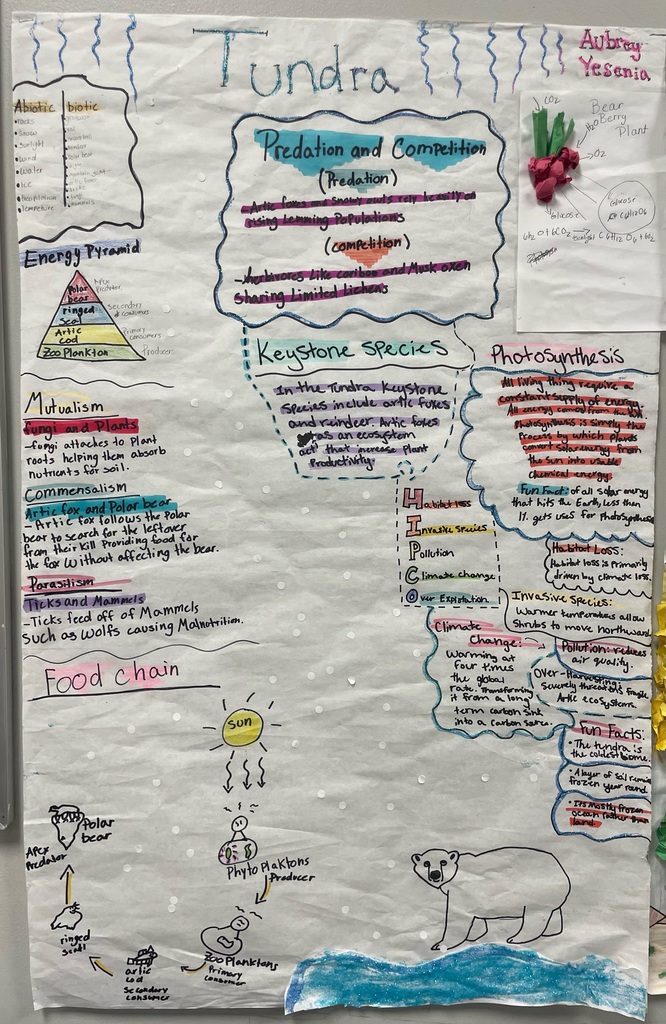 Tundra
Aubrey
Yesenia
Abiotic biotic
rocks
Snow
Sunlight
wind
water
ice
Energy Pyramid
Polar
bear
Apex
Predator
ringed
seal
Secondary
consumers
Artic
cod
Primary
consumers
Zoo Plankton
Producers
Mutualism
Fungi and Plants
-fungi attaches to plant
roots helping them absorb
nutrients for soil.
Commensalism
Artic fox and Polar bear
- Artic fox follows the Polar
bear to search for the leftover
from their kill Providing food for
the fox without affecting the bear.
Parasitism
Ticks and Mammels
- Ticks feed off of Mammels
such as wolfs causing Malnutrition.
Predation and Competition
(Predation)
- Artic foxes and snowy owls rely heavily on
rising Lemming Populations
(competition)
- herbivores Like caribou and Musk oxen
sharing Limited lichens
CO2
Bear
Berry
Plant
H2O
O2
Glucose
Glucose
C6H12O6
6H2O+6CO2 Sunlight C6H12O6+6O2
Keystone Species
In the Tundra Keystone
Species include artic foxes
and reindeer. Artic foxes
act as an ecosystem
that increase Plant
Productivity.
Photosynthesis
All living thing require a
constant supply of energy.
All energy comes from the sun
Photosynthesis is simply the
Process by which plants
convert solar energy from
the sun into usable
chemical energy.
Fun Fact: of all solar energy
that hits the Earth, less than
1% gets uses for photosynthesis
Habitat loss
Invasive Species
Pollution
Climate change
Over Explotation
Habitat Loss:
Habitat loss is primarily
driven by climate loss.
Invasive Species:
Warmer temperatures allow
Shrubs to move northward
Climate
Change:
Warming at
four times
the global
rate. Transforming
it from a long
term carbon sink
into a Carbon
Pollution: reduces
air quality.
Over-Harvesting:
Severely threatens fragile
Artic ecosystems.
Fun Facts:
• The tundra is
the coldest biome.
• A layer of soil remains
frozen year round.
• Its mostly frozen
ocean rather than
land.
Food chain
sun
Phyto Planktons
Producer
Zoo Planktons
Primary
consumer
artic
cod
Secondary
consumer
ringed
seal
Polar
bear
Apex
Predator